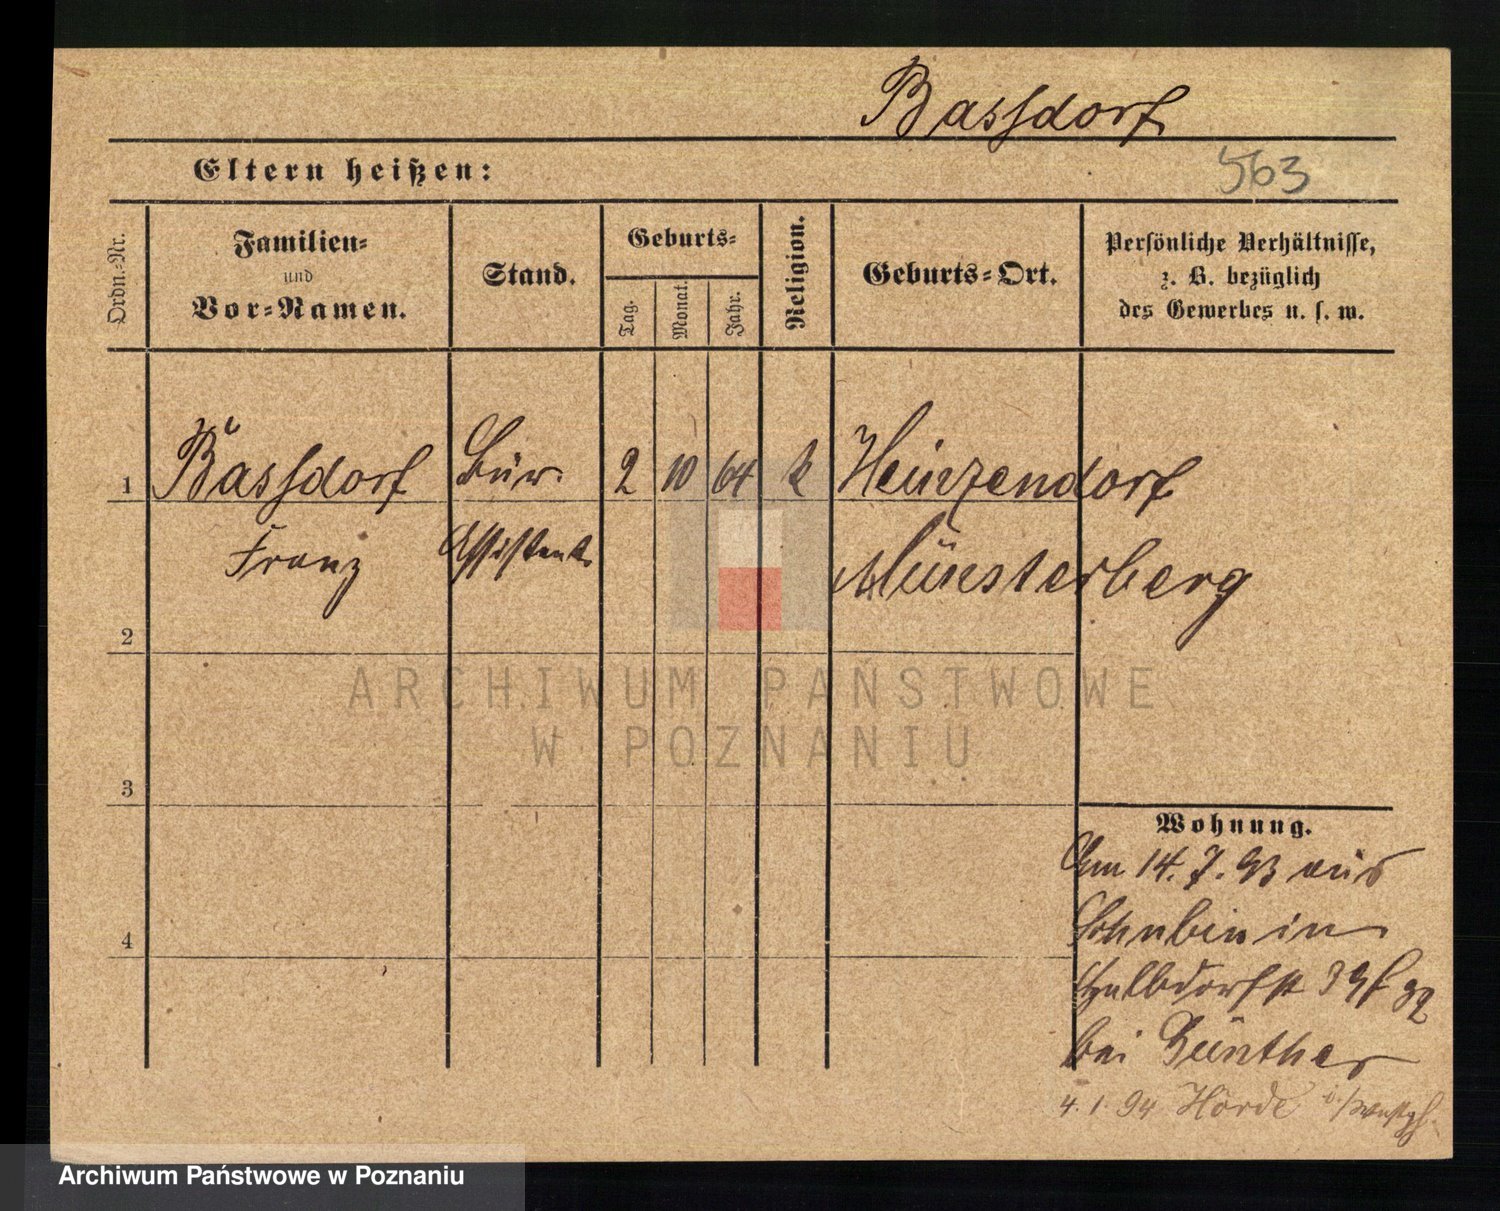 Bassdorf
Eltern heißen:
563
Ordn.-Nr.
Familien-
und
Vor-Namen.
Stand.
Geburts-
Tag.
Monat.
Jahr.
Religion.
Geburts-Ort.
Persönliche Verhältnisse,
z. B. bezüglich
des Gewerbes u. s. w.
1 Bassdorf Bür. 2 10 64 k Heinzendorf
Franz Assistent Münsterberg
2
ARCHIWUM PAŃSTWOWE
W POZNANIU
3
Wohnung.
Am 14. 7. 93 aus
Schubin in
4
Halbdorfst 39
bei Günther
4. 1. 94 Hörde i./Westph.
Archiwum Państwowe w Poznaniu